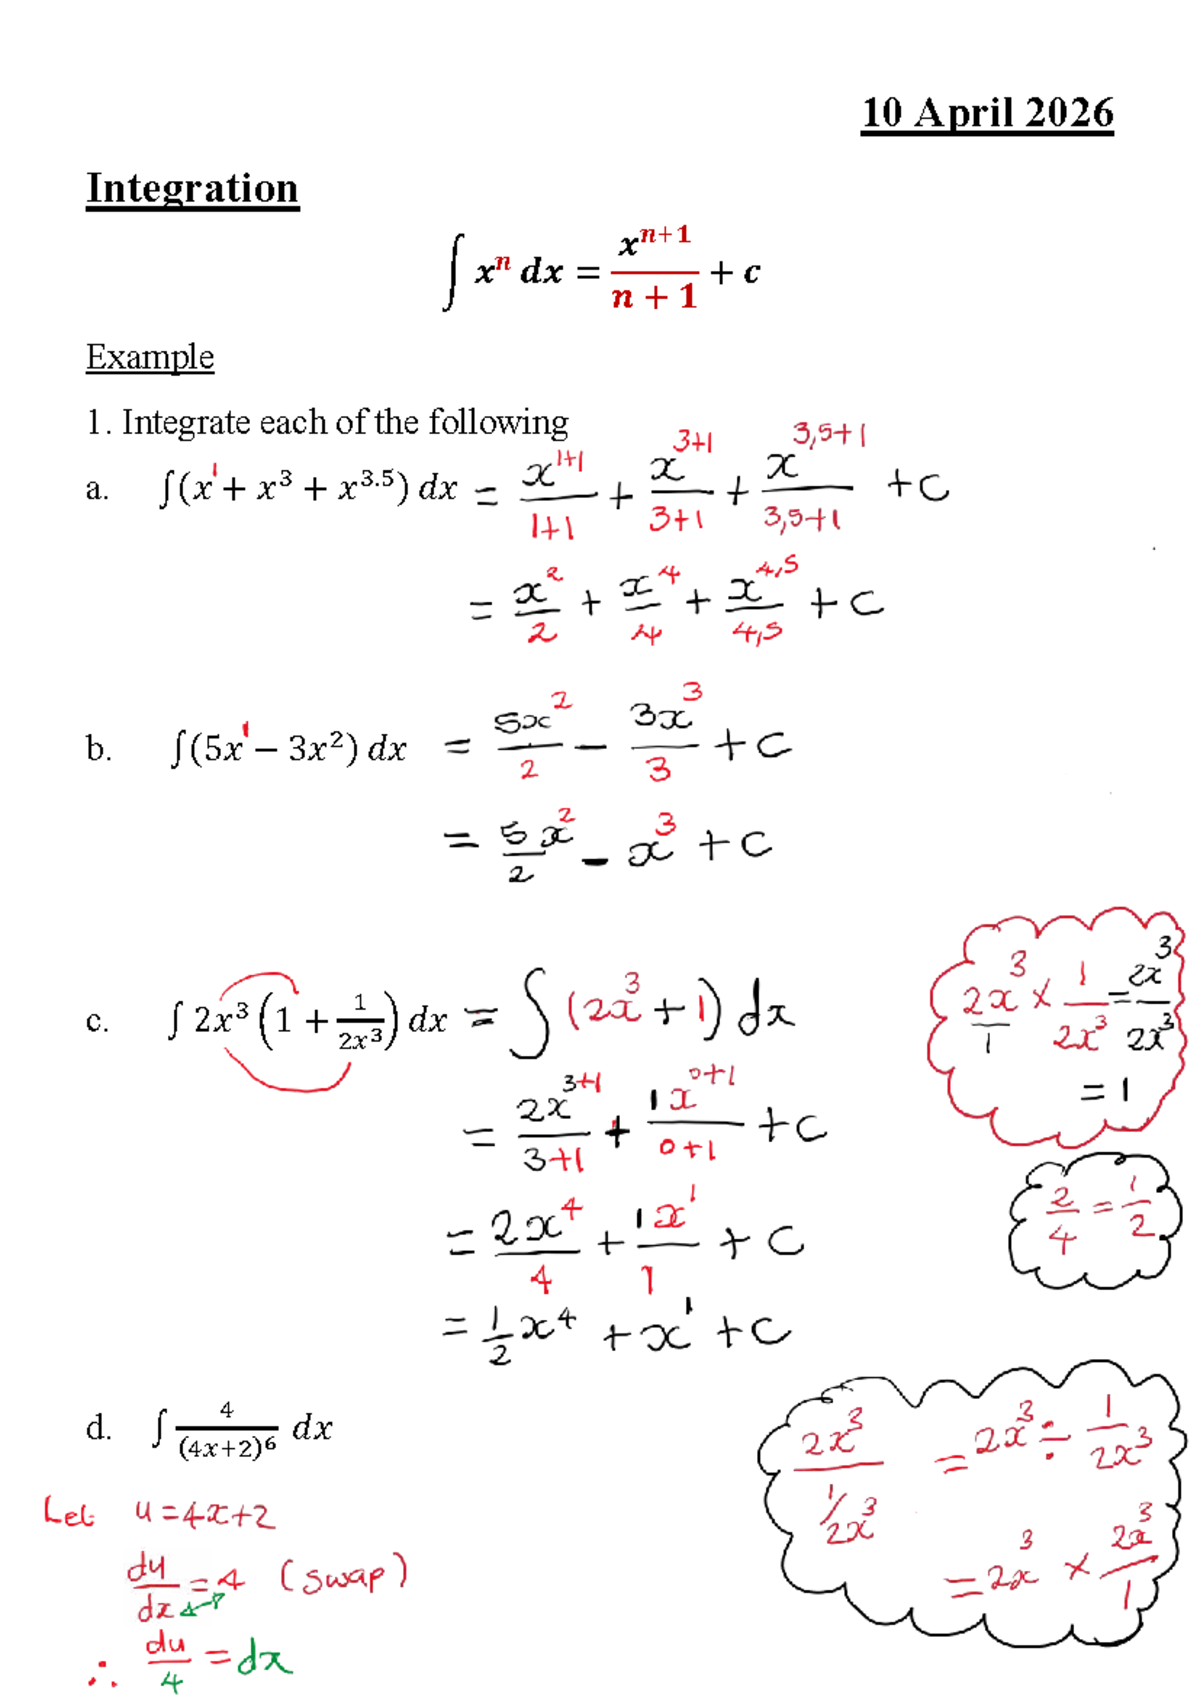 10 April 2026
Integration
∫ xⁿ dx = xⁿ⁺¹/(n + 1) + c
Example
1. Integrate each of the following
a. ∫(x¹ + x³ + x³·⁵) dx = x^(1+1)/(1+1) + x^(3+1)/(3+1) + x^(3,5+1)/(3,5+1) + c
= x²/2 + x⁴/4 + x^(4,5)/4,5 + c
b. ∫(5x¹ − 3x²) dx = 5x²/2 − 3x³/3 + c
= 5/2 x² − x³ + c
c. ∫ 2x³ (1 + 1/(2x³)) dx = ∫ (2x³ + 1) dx
= 2x^(3+1)/(3+1) + 1x^(0+1)/(0+1) + c
= 2x⁴/4 + 1x¹/1 + c
= 1/2 x⁴ + x¹ + c
2x³/1 × 1/(2x³) = 2x³/2x³
= 1
2/4 = 1/2
d. ∫ 4/(4x+2)⁶ dx
Let u = 4x+2
du/dx = 4 (swap)
∴ du/4 = dx
2x³/(1/2x³) = 2x³ ÷ 1/(2x³)
= 2x³ × 2x³/1